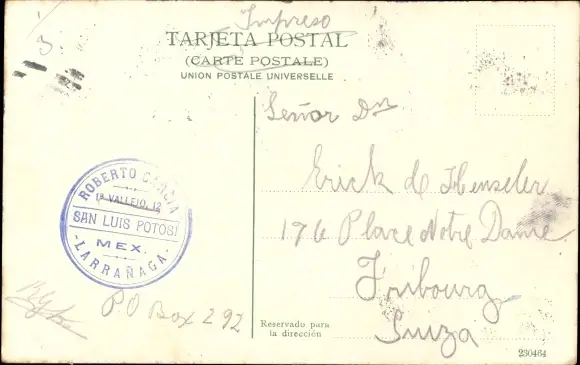 Impreso
3
TARJETA POSTAL
(CARTE POSTALE)
UNION POSTALE UNIVERSELLE
Señor Dn
Erick de Henseler
176 Place Notre Dame
Fribourg
Suiza
ROBERTO GARCIA
1ª VALLEJO, 12
SAN LUIS POTOSI
MEX.
-LARRAÑAGA-
P.O Box 292
Reservado para
la dirección
230464